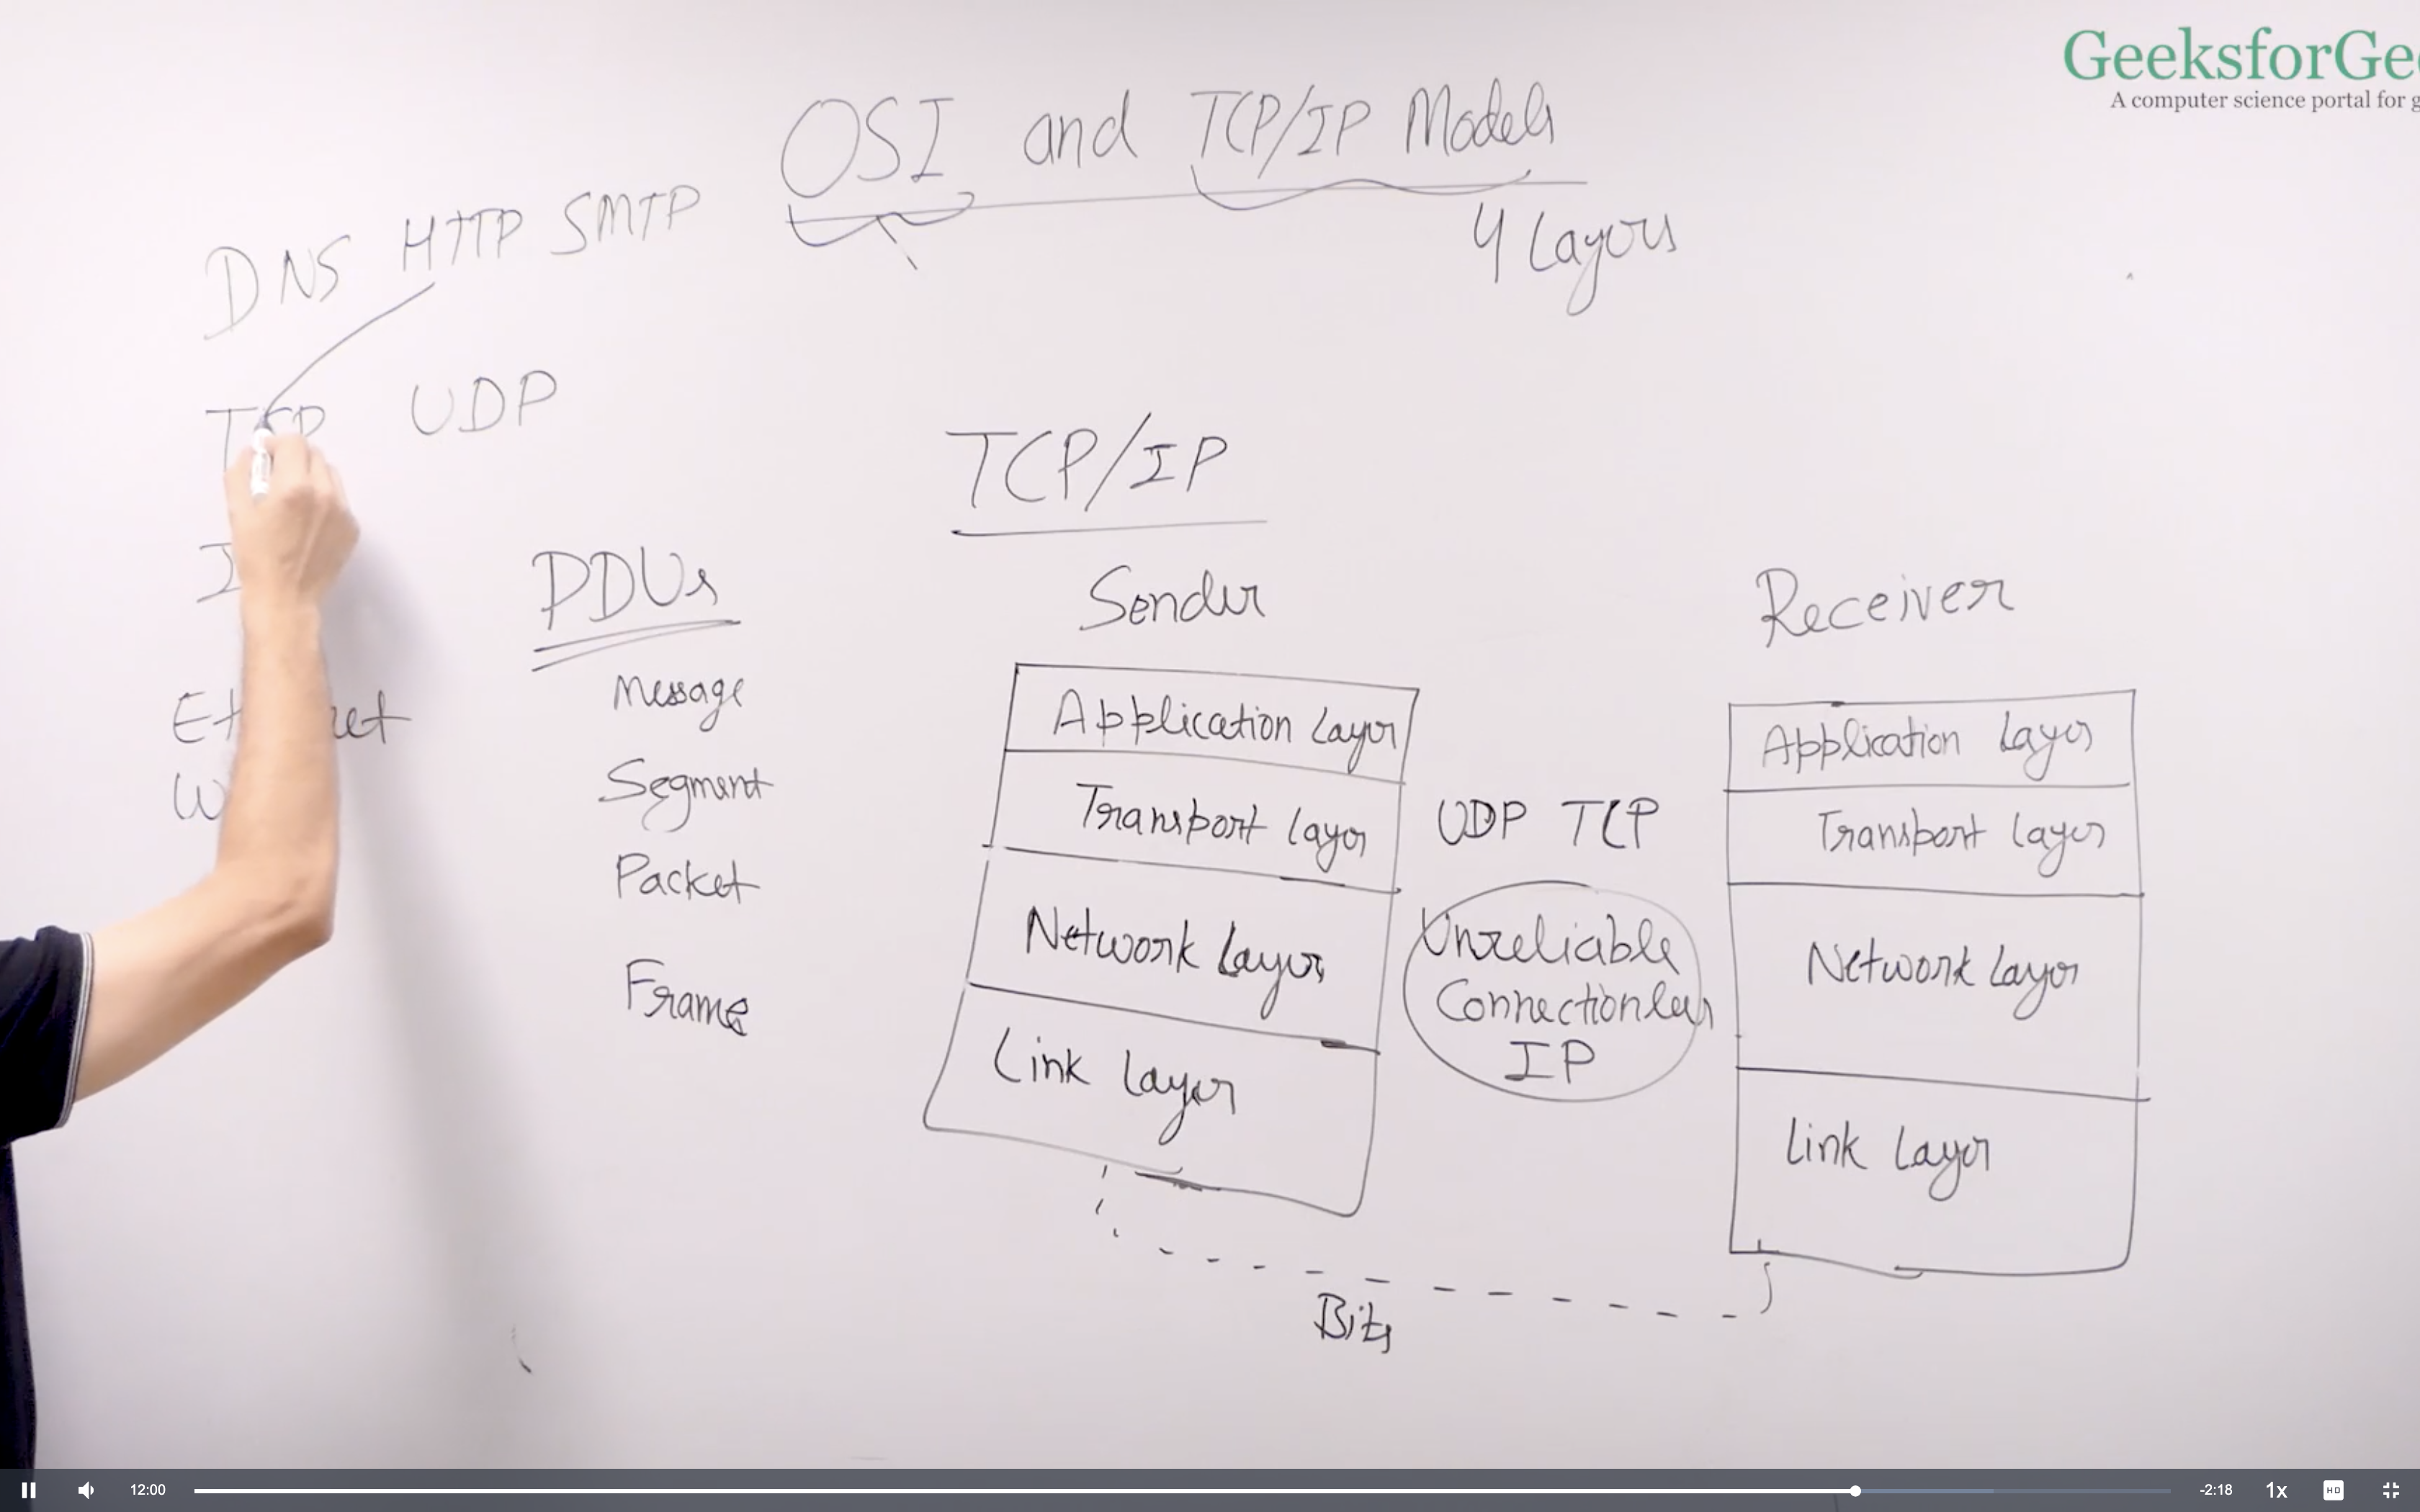 GeeksforGe
A computer science portal for g
OSI and TCP/IP Models
4 Layers
DNS HTTP SMTP
UDP
TCP/IP
PDUs
Sender
Receiver
Message
Segment
Packet
Frame
Application Layer
Transport Layer
Network Layer
Link Layer
UDP TCP
Unreliable
Connectionless
IP
Application Layer
Transport Layer
Network Layer
Link Layer
Bits
12:00
-2:18
1x
HD